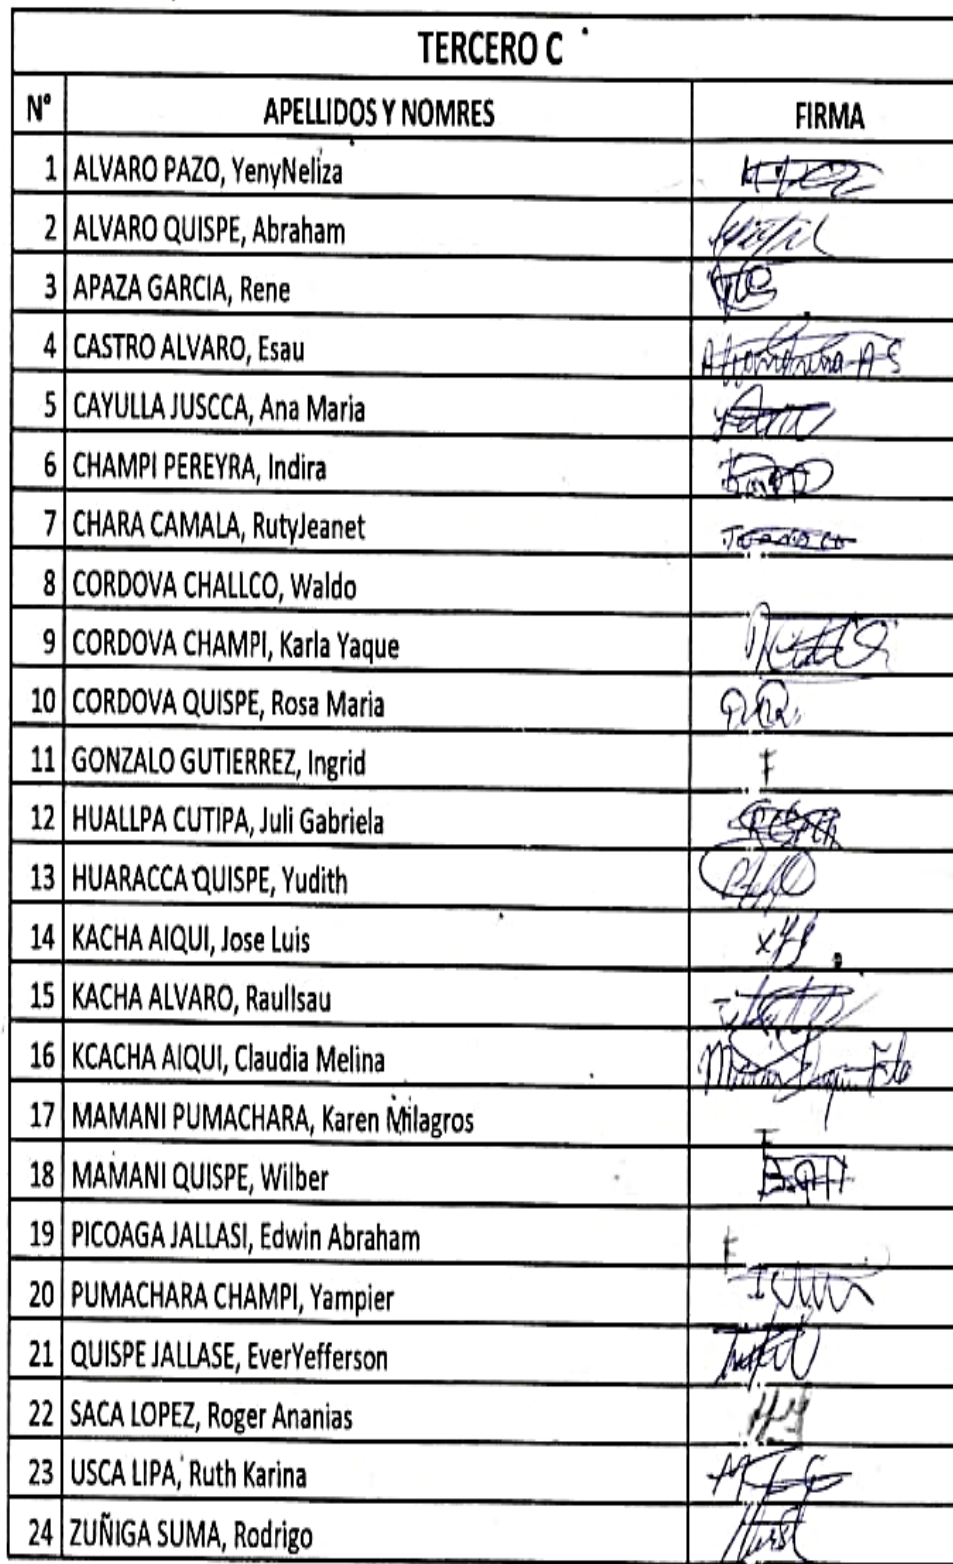 TERCERO C
N° APELLIDOS Y NOMRES FIRMA
1 ALVARO PAZO, YenyNeliza
2 ALVARO QUISPE, Abraham
3 APAZA GARCIA, Rene
4 CASTRO ALVARO, Esau
5 CAYULLA JUSCCA, Ana Maria
6 CHAMPI PEREYRA, Indira
7 CHARA CAMALA, RutyJeanet
8 CORDOVA CHALLCO, Waldo
9 CORDOVA CHAMPI, Karla Yaque
10 CORDOVA QUISPE, Rosa Maria
11 GONZALO GUTIERREZ, Ingrid F
12 HUALLPA CUTIPA, Juli Gabriela
13 HUARACCA QUISPE, Yudith
14 KACHA AIQUI, Jose Luis
15 KACHA ALVARO, RaulIsau
16 KCACHA AIQUI, Claudia Melina
17 MAMANI PUMACHARA, Karen Milagros
18 MAMANI QUISPE, Wilber
19 PICOAGA JALLASI, Edwin Abraham F
20 PUMACHARA CHAMPI, Yampier
21 QUISPE JALLASE, EverYefferson
22 SACA LOPEZ, Roger Ananias
23 USCA LIPA, Ruth Karina
24 ZUÑIGA SUMA, Rodrigo